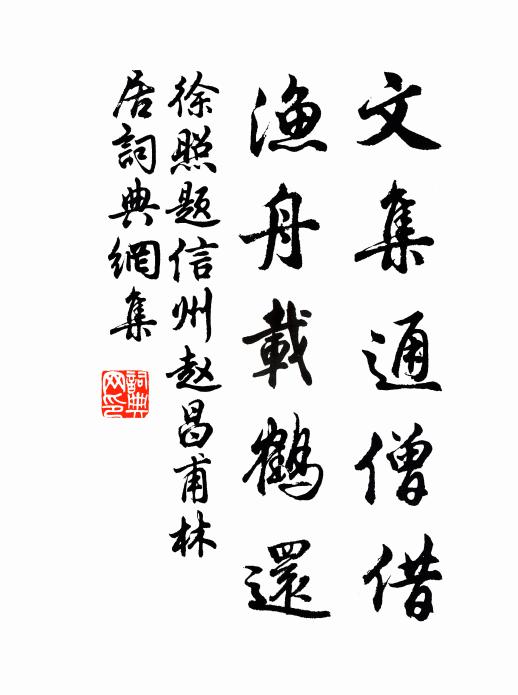 文集通僧借
漁舟載鶴還
徐照題信州赵昌甫林
居詞典網集
詞典網印